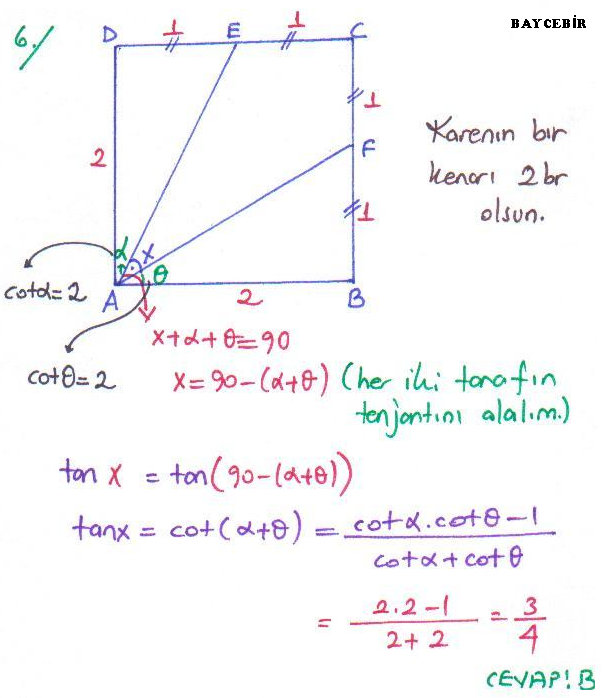 BAYCEBİR
6./
D 1 E 1 C
1
2
F
1
Karenin bir
kenarı 2br
olsun.
α x θ
cotα=2
A 2 B
x+α+θ=90
cotθ=2
x=90-(α+θ) (her iki tarafın
tanjantını alalım.)
tan x = tan(90-(α+θ))
tanx = cot(α+θ) = cotα.cotθ-1
cotα+cotθ
= 2.2-1 = 3
2+2 4
CEVAP! B